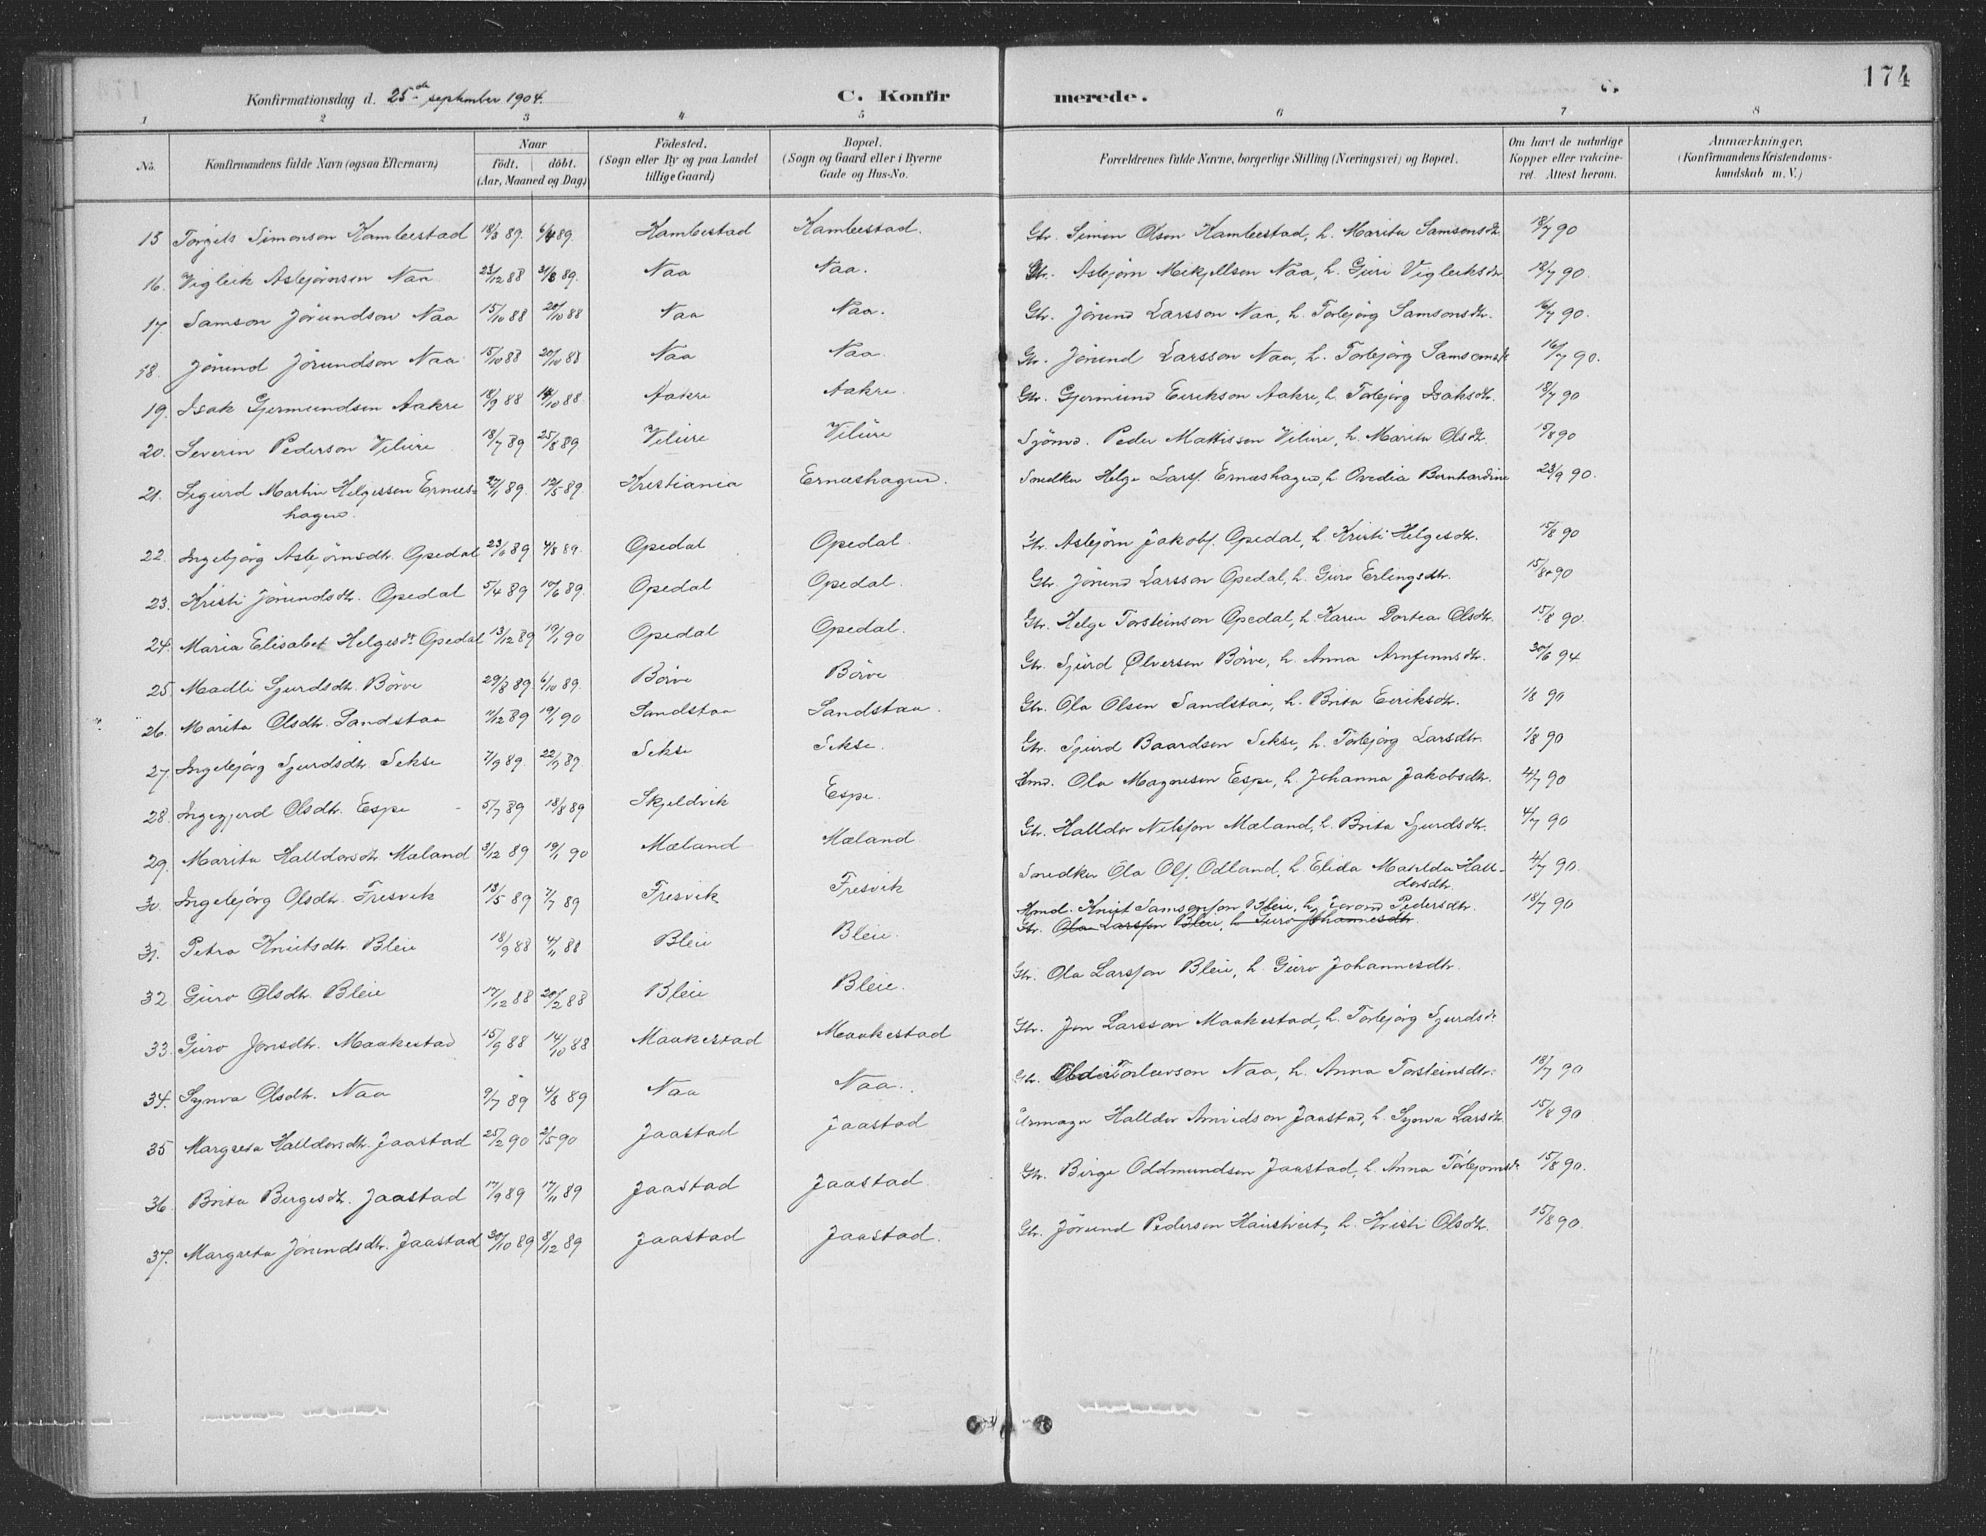 174
Konfirmationsdag d. 25de september 1904. C. Konfirmerede. C.
1 2 3 4 5 6 7 8
No. Konfirmandens fulde Navn (ogsaa Efternavn) Naar født. døbt. (Aar, Maaned og Dag) Födested. (Sogn eller By og paa Landet tillige Gaard) Bopæl. (Sogn og Gaard eller i Byerne Gade og Hus-No. Forældrenes fulde Navne, borgerlige Stilling (Næringsvei) og Bopæl. Om havt de naturlige Kopper eller vakcineret. Attest herom. Anmærkninger. (Konfirmandens Kristendomskundskab m. V.)
15 Torgils Simonson Kambestad 18/3 89. 6/4 89. Kambestad Kambestad. Gbr. Simon Olson Kambestad, h. Marita Samsonsdtr. 18/7 90
16. Vigleik Asbjørnson Naa 23/12 88 31/3 89. Naa Naa. Gbr. Asbjørn Mikjellson Naa, h. Guri Vigleiksdtr 18/7 90.
17 Samson Jørundson Naa 15/10 88 28/10 88 Naa Naa. Gbr. Jørund Larsson Naa, h. Torbjørg Samsonsdtr. 16/7 90.
18. Jørund Jørundson Naa 15/10 88 20/10 88 Naa Naa. Gbr. Jørund Larsson Naa, h. Torbjørg Samsonsdtr 16/7 90.
19. Isak Gjermundsen Aakre 18/9 88 14/10 88. Aakre Aakre. Gbr. Gjermund Eirikson Aakre, h. Torbjørg Isaksdtr. 18/7 90
20. Severin Pederson Vilure 18/7 89 25/8 89. Vilure Vilure Sjømd. Peder Mattisson Vilure, h. Marita Olsdtr. 15/8 90
21. Sigurd Martin Helgessen Ernæs- 27/1 89. 12/5 89 Kristiania Ernæshagen. Snedker Helge Larss. Ernæshagen, h. Ovedia Bernhardine 23/9 90.
hagen.
22. Ingebjørg Asbjørnsdtr. Opedal 23/6 89 4/8 89. Opedal Opedal. Gbr. Asbjørn Jakobs. Opedal, h. Kristi Helgesdtr. 15/8 90
23. Kristi Jørundsdtr. Opedal 5/4 89 10/6 89. Opedal Opedal. Gbr. Jørund Larsson Opedal, h. Guro Erlingsdtr. 15/8 90
24. Maria Elisabet Helgesdtr Opedal 13/12 89 19/1 90 Opedal Opedal. Gbr. Helge Torsteinson Opedal, h. Karen Dortea Olsdtr. 15/8 90.
25. Madli Sjurdsdtr. Børve 29/8 89. 6/10 89. Børve Børve Gbr. Sjurd Ølverson Børve, h. Anna Arnfinnsdtr. 30/6 94
26. Marita Olsdtr. Sandstaa 11/12 89 19/1 90 Sandstaa Sandstaa. Gbr. Ola Olsen Sandstaa, h. Brita Eiriksdtr. 1/8 90
27. Ingebjørg Sjurdsdtr. Sekse 7/9 89. 22/9 89. Sekse Sekse. Gbr. Sjurd Baardson Sekse, h. Torbjørg Larsdtr. 1/8 90
28. Ingegjerd Olsdtr. Espe 5/7 89 18/8 89 Skjeldvik Espe. Hmd. Ola Magneson Espe, h. Johanna Jakobsdtr. 4/7 90
29. Marita Halldorsdtr. Mæland 3/12 89 19/1 90 Mæland Mæland Gbr. Halldor Nilsson Mæland, h. Brita Sjurdsdtr. 4/7 90
30. Ingebjørg Olsdtr. Fresvik 13/5 89 7/7 89 Fresvik Fresvik Snedker Ola Ols. Odland, h. Elida Matilda Hall- 4/7 90.
dorsdtr.
31. Petra Knutsdtr. Bleie 18/9 88 4/11 88 Bleie Bleie. Hmd. Knut Samsonson Bleie, h. Pedersdtr. 18/7 90
Gbr. Ola Larsson Bleie, h. Guro Johannesdtr.
32. Guro Olsdtr. Bleie 17/12 88 28/2 88 Bleie Bleie. Gbr. Ola Larsson Bleie, h. Guro Johannesdtr.
33. Guro Jonsdtr. Maakestad 15/9 88 14/10 88 Maakestad Maakestad Gbr. Jon Larsson Maakestad, h. Torbjørg Sjurdsdtr
34. Synva Olsdtr. Naa 9/7 89 4/8 89 Naa Naa. Gbr. Torleivson Naa, h. Anna Torsteinsdtr. 18/7 90
35 Margreta Halldorsdtr. Jaastad 25/2 90 2/5 90 Jaastad Jaastad Halldor Amundson Jaastad, h. Synva Larsdtr. 15/8 90
36. Brita Bergesdtr. Jaastad 17/9 89 17/11 89 Jaastad Jaastad. Gbr. Birge Oddmundsen Jaastad, h. Anna Torbjornsdtr 15/8 90.
37. Margreta Jørundsdtr. Jaastad 30/10 89 8/12 89 Jaastad Jaastad. Gbr. Jørund Pederson Haustveit, h. Kristi Olsdtr. 15/8 90.